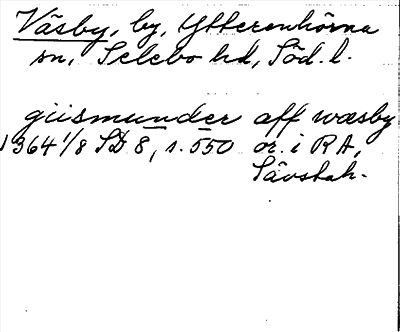 Väsby, by, Ytterenhörna
sn, Selebo hd, Söd. l.
giismunder aff wæsby
1364 1/8 SD 8, s. 550 or. i RA,
Sävstah.